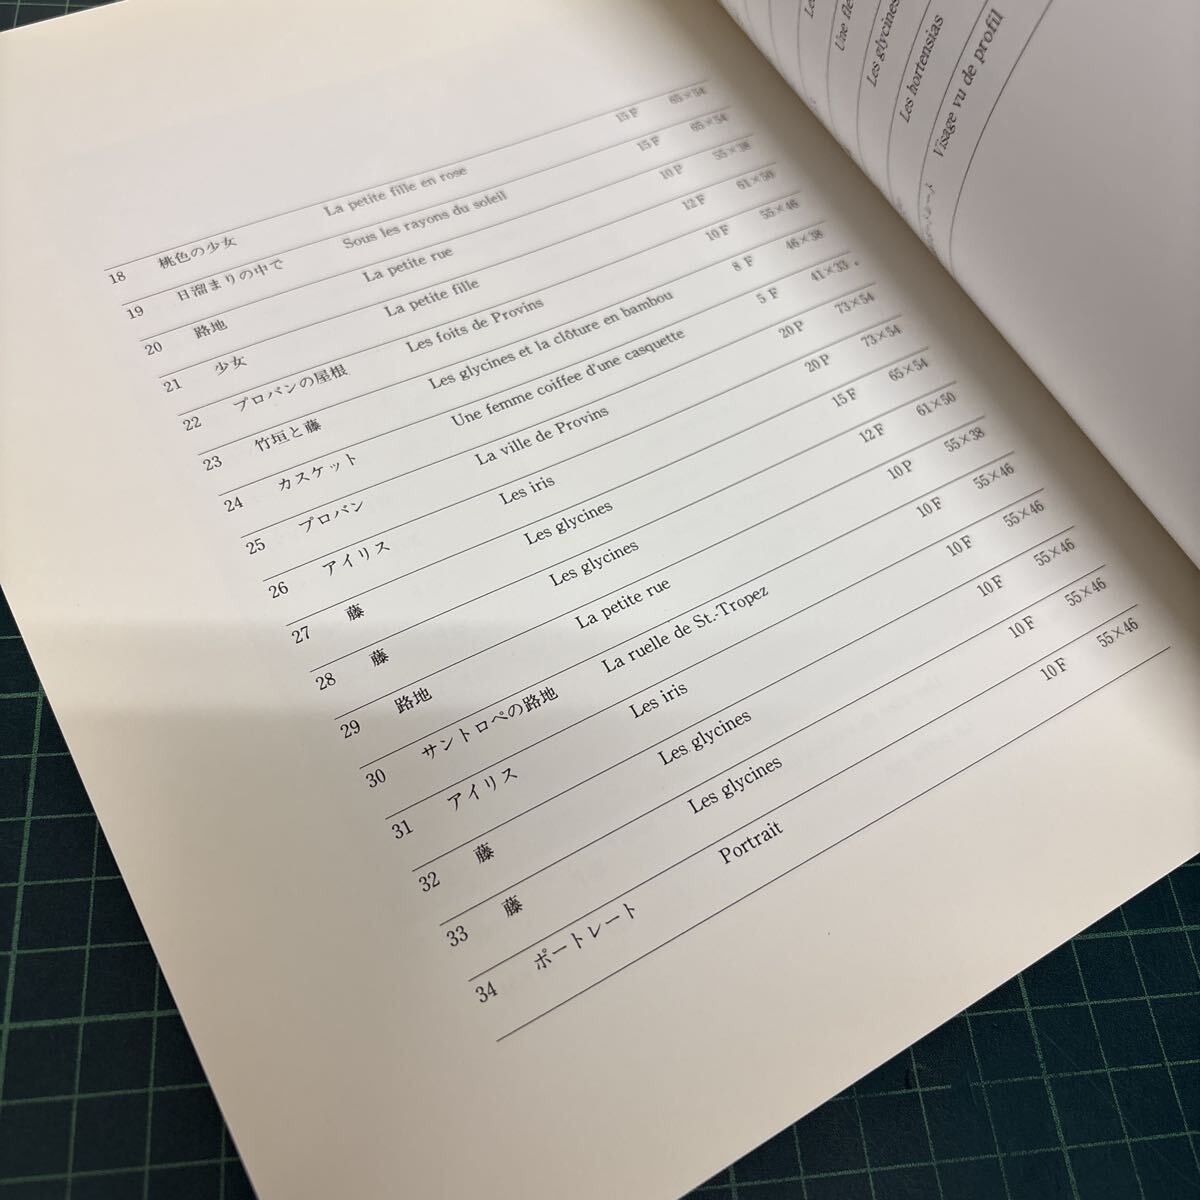 18 桃色の少女 La petite fille en rose 15 F 65×54
19 日溜まりの中で Sous les rayons du soleil 15 F 65×54
20 路地 La petite rue 10 P 55×38
21 少女 La petite fille 12 F 61×50
22 プロバンの屋根 Les foits de Provins 10 F 55×46
23 竹垣と藤 Les glycines et la clôture en bambou 8 F 46×38
24 カスケット Une femme coiffee d'une casquette 5 F 41×33
25 プロバン La ville de Provins 20 P 73×54
26 アイリス Les iris 20 P 73×54
27 藤 Les glycines 15 F 65×54
28 藤 Les glycines 12 F 61×50
29 路地 La petite rue 10 P 55×38
30 サントロペの路地 La ruelle de St.-Tropez 10 F 55×46
31 アイリス Les iris 10 F 55×46
32 藤 Les glycines 10 F 55×46
33 藤 Les glycines 10 F 55×46
34 ポートレート Portrait 10 F 55×46
Une fle
Les glycines
Les hortensias
Visage vu de profil